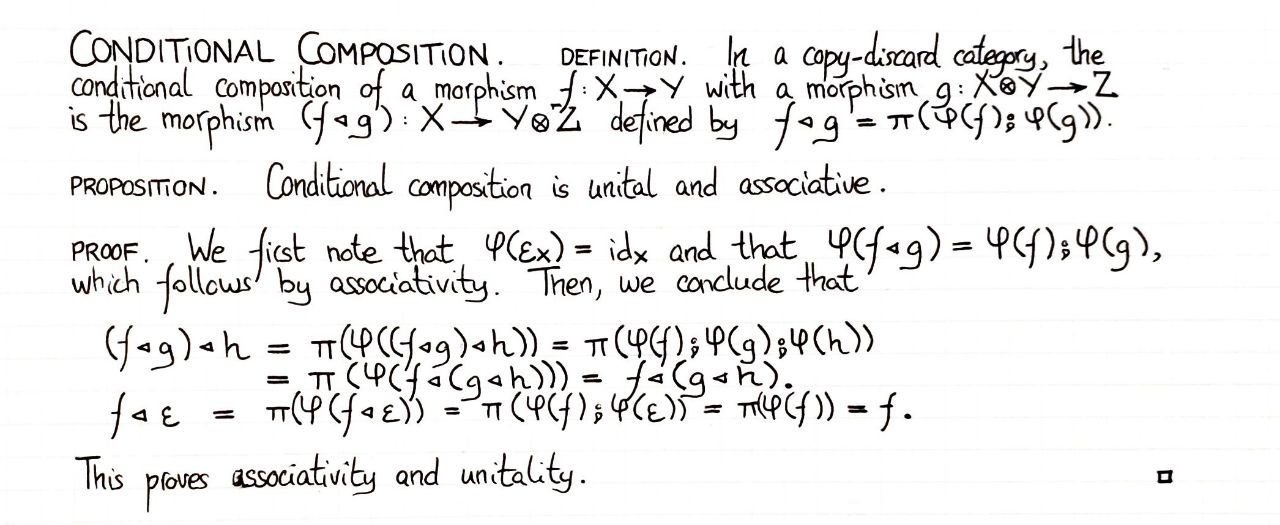 CONDITIONAL COMPOSITION. DEFINITION. In a copy-discard category, the
conditional composition of a morphism f: X→Y with a morphism g: X⊗Y→Z
is the morphism (f◃g): X→Y⊗Z defined by f◃g = π(φ(f)⨾φ(g)).
PROPOSITION. Conditional composition is unital and associative.
PROOF. We first note that φ(εₓ) = idₓ and that φ(f◃g) = φ(f)⨾φ(g),
which follows by associativity. Then, we conclude that
(f◃g)◃h = π(φ((f◃g)◃h)) = π(φ(f)⨾φ(g)⨾φ(h))
= π(φ(f◃(g◃h))) = f◃(g◃h).
f◃ε = π(φ(f◃ε)) = π(φ(f)⨾φ(ε)) = π(φ(f)) = f.
This proves associativity and unitality. □